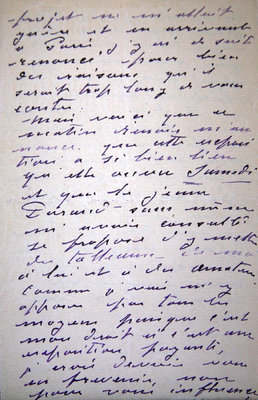 projet ne m'allait
guère et en arrivant
à Paris, j'y ai de suite
renoncé, pour bien
des raisons qu'il
serait trop long de vous
conter.
Mais voici que ce
matin Renoir m'an
nonce que cette exposi
tion a si bien lieu
qu'elle ouvre Samedi
et que le jeune
Durand sans même
m'avoir consulté
se propose d'y mettre
des tableaux de moi
à lui et à des amateurs
comme je vais m'y
opposer par tous les
moyens puisque c'est
mon droit si c'est une
exposition payante,
je crois devoir vous
en prévenir, non
pour vous influencer